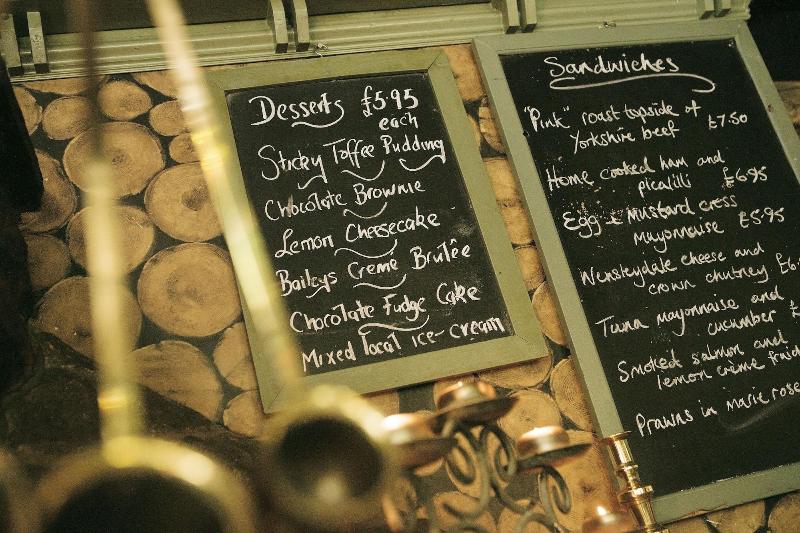 Desserts £5.95
each
Sticky Toffee Pudding
Chocolate Brownie
Lemon Cheesecake
Baileys Creme Brulêe
Chocolate Fudge Cake
Mixed local ice-cream
Sandwiches
"Pink" roast topside of
Yorkshire beef £7.50
Home cooked ham and
picalilli £6.95
Egg & Mustard cress
Mayonnaise £5.95
Wensleydale cheese and
crown chutney £6.
Tuna mayonnaise and
cucumber £
Smoked salmon and
lemon crème
Prawns in marie rose